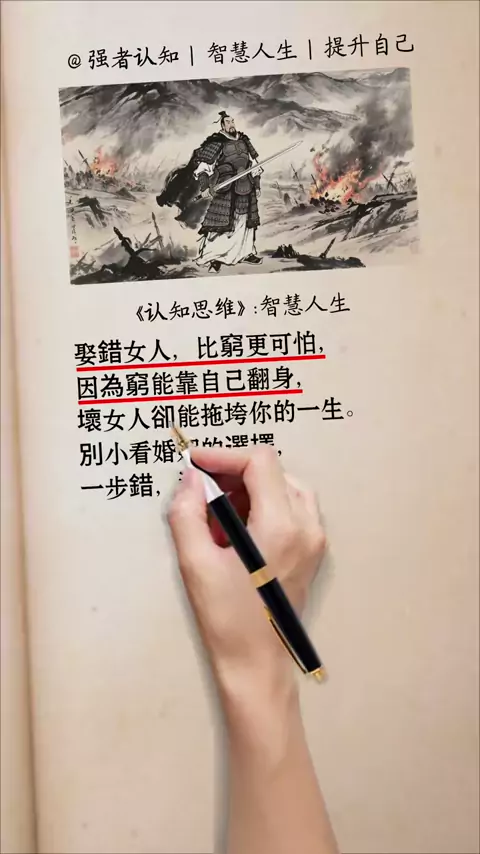 @强者认知 | 智慧人生 | 提升自己
《认知思维》:智慧人生
娶錯女人，比窮更可怕，
因為窮能靠自己翻身，
壞女人卻能拖垮你的一生。
別小看婚姻的選擇，
一步錯，